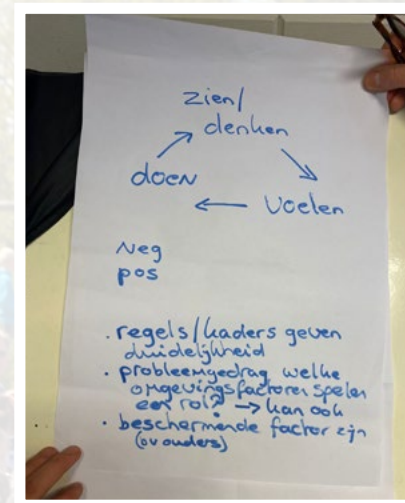 zien/
denken
doen
voelen
Neg
pos
. regels/kaders geven
duidelijkheid
. probleemgedrag welke
omgevingsfactoren spelen
een rol? → kan ook
. beschermende factor zijn
(bv ouders)